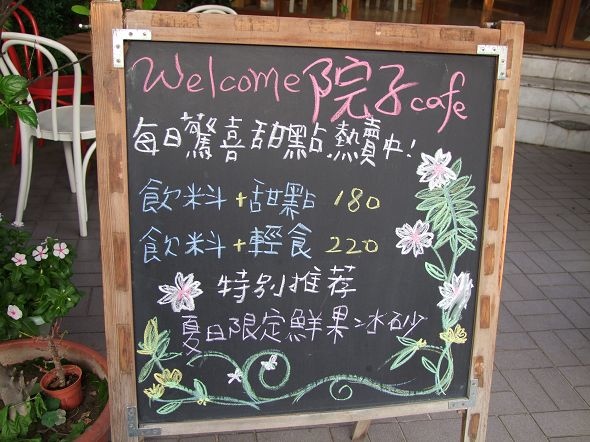 Welcome 院子 cafe
每日驚喜甜點.熱賣中!
飲料+甜點 180
飲料+輕食 220
特別推荐
夏日限定鮮果冰砂